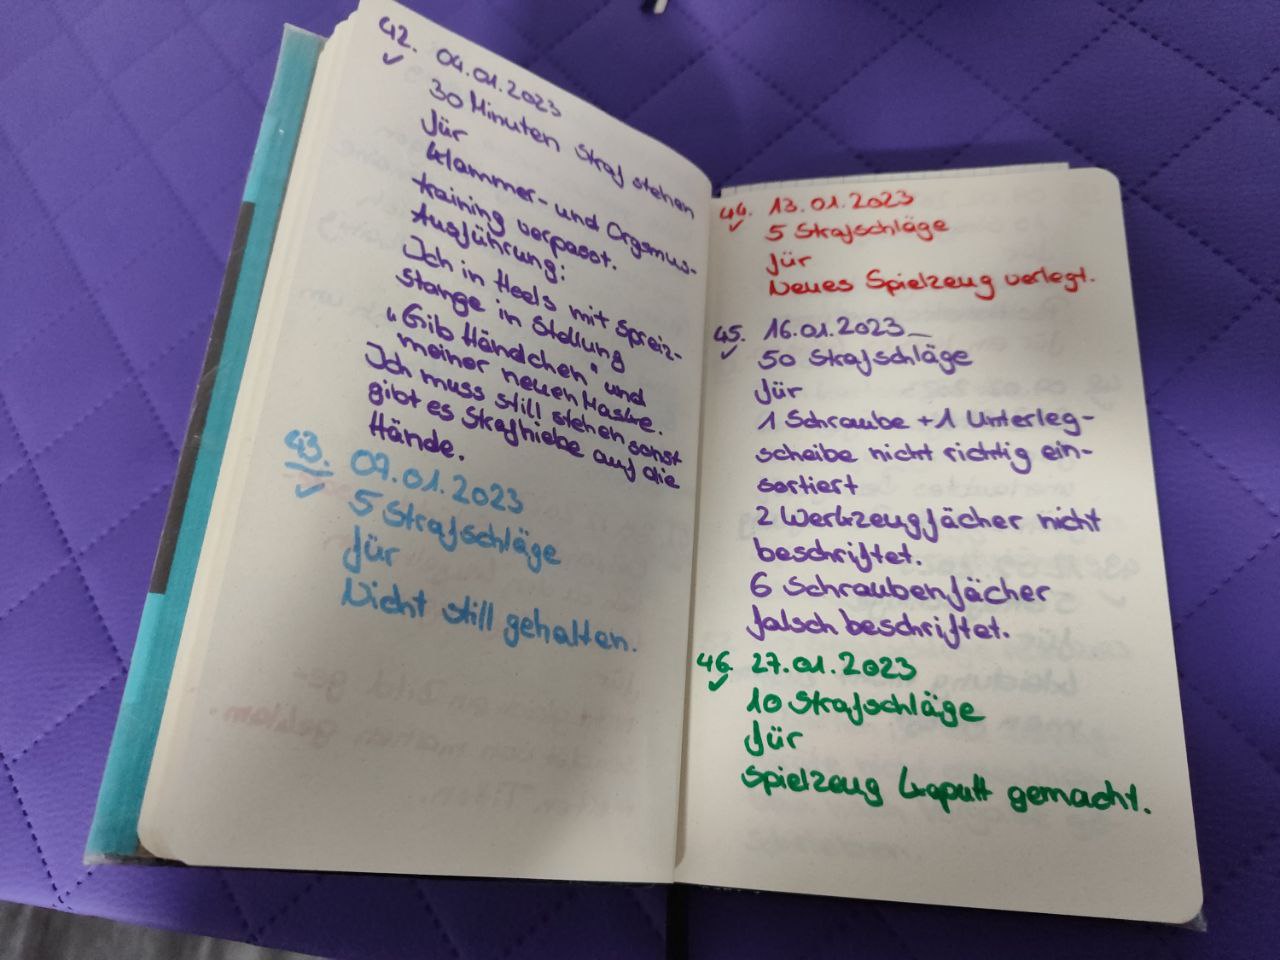 42. 04.01.2023
✓ 30 Minuten Straf stehen
für
Klammer- und Orgsmus-
training verpasst.
Ausführung:
Ich in Heels mit Spreiz-
stange in Stellung
"Gib Händchen" und
meiner neuen Maske.
Ich muss still stehen sonst
gibt es Strafhiebe auf die
Hände.
43. 09.01.2023
✓ 5 Strafschläge
für
Nicht still gehalten.
44. 13.01.2023
✓ 5 Strafschläge
für
Neues Spielzeug verlegt.
45. 16.01.2023
✓ 50 Strafschläge
für
1 Schraube + 1 Unterleg-
scheibe nicht richtig ein-
sortiert
2 Werkzeugfächer nicht
beschriftet.
6 Schraubenfächer
falsch beschriftet.
46. 27.01.2023
✓ 10 Strafschläge
für
Spielzeug kaputt gemacht.